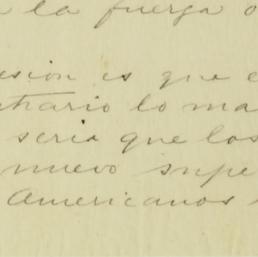 la fuerza o
esion is que e
trario lo ma
seria que los
nuevo supe
Americanos